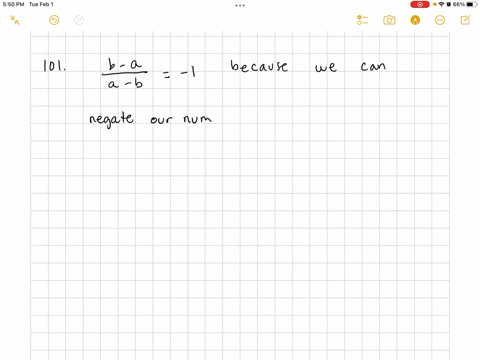 5:50 PM Tue Feb 1
66%
101. b-a / a-b = -1 because we can
negate our num